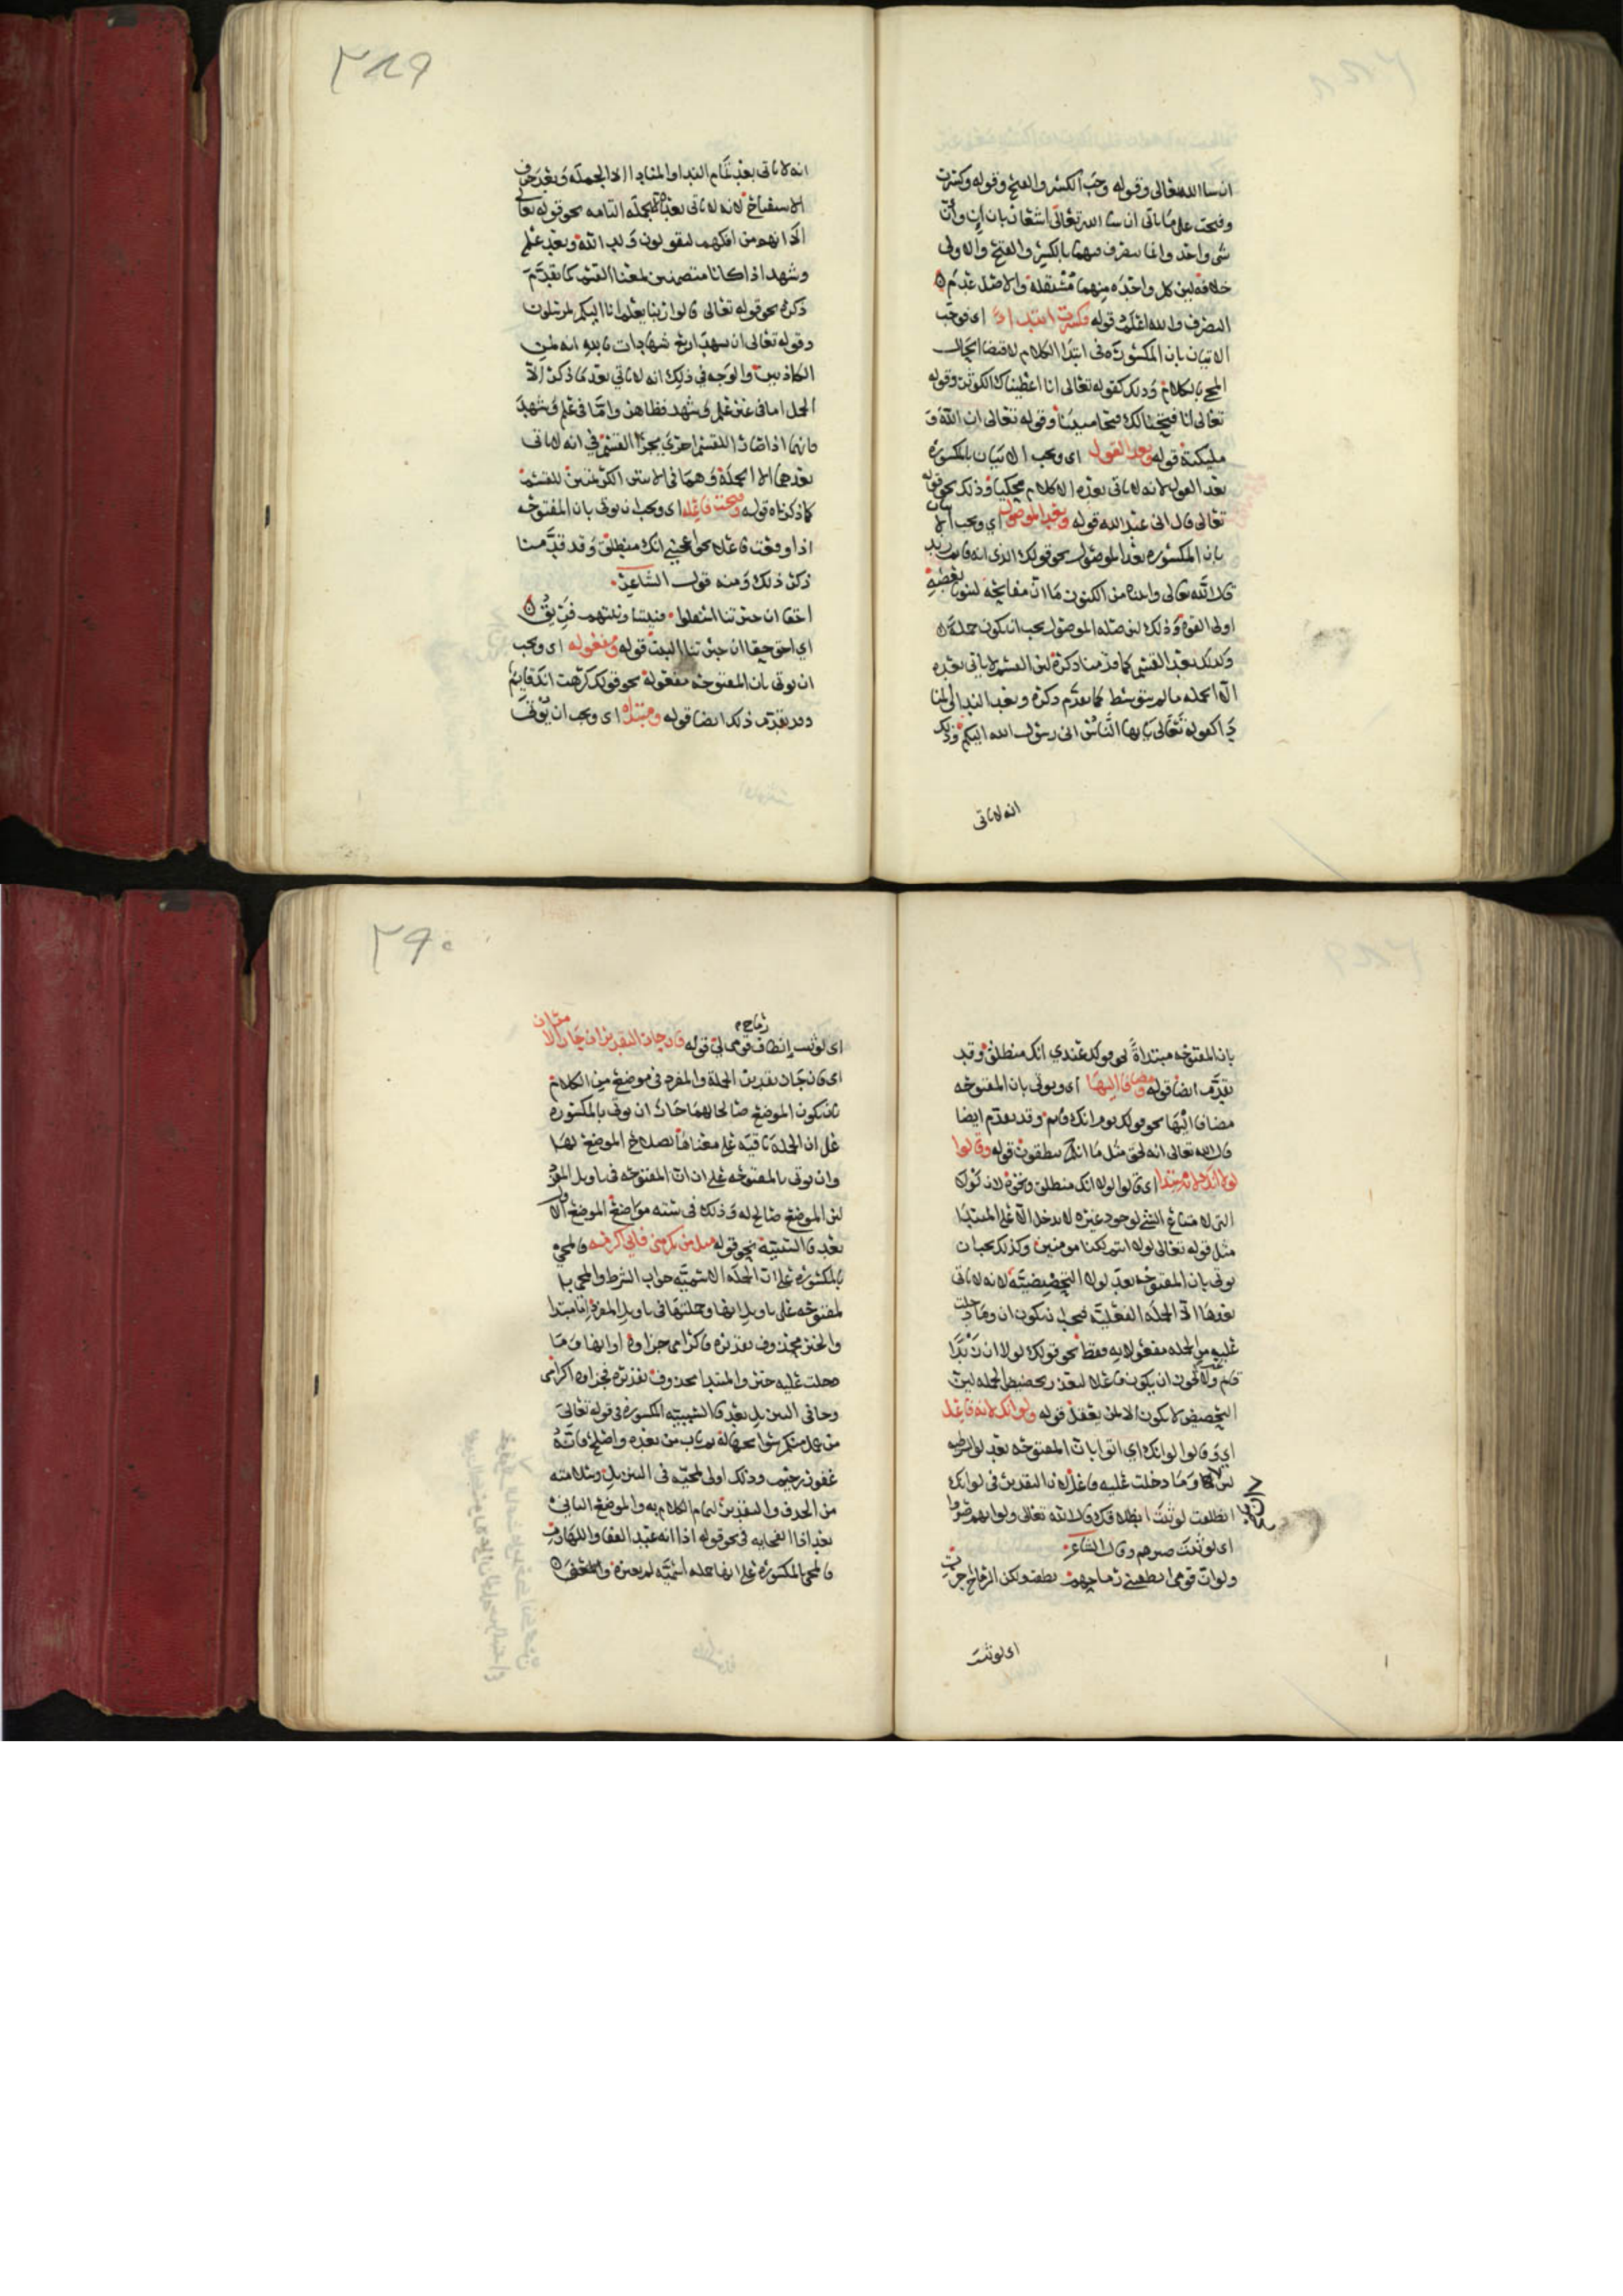 ان شا الله تعالى وقوله وجب الكسر والفتح وقوله وكسرت
وفتحت على ما ياتى ان شا الله تعالى اشعار بان إن وأن
شى واحد وانما تتصرف فيهما بالكسر والفتح والاولى
خلافه لان كل واحده منهما مستقلة والاصل عدم
التصرف والله اعلم قوله فكسرت ابتداءً اى فوجب
الاتيان بان المكسورة فى ابتدا الكلام لاقتضا الحال
المجى بالكلام وذلك كقوله تعالى انا اعطيناك الكوثر وقوله
تعالى انا فتحنا لك فتحا مبينا وقوله تعالى ان الله و
مليكته قوله وبعد القول اى ويجب الاتيان بالمكسورة
بعد القول لانه لا ياتى بعده الا كلام محكيا وذلك نحو قوله
تعالى قال انى عبد الله قوله وبعد الموصول اى ويجب الاتيان
بان المكسوره بعد الموصول نحو قولك الذى انه قايم زيد
قال الله تعالى واتيناه من الكنوز ما ان مفاتحه لتنو بالعصبه
اولى القوة وذلك لان صلة الموصول يجب ان تكون جملة
وكذلك بعد القسم كما قدمنا ذكره لان القسم لا ياتى بعده
الا الجمله ما لم يتوسط كما تقدم ذكره وبعد الندا المنا
دا كقوله تعالى يايها الناس انى رسول الله اليكم وذلك
انه لا ياتى
٣٨٩
انه لا ياتى بعد تمام الندا والمنادا الا الجملة وبعد حرف
الاستفتاح لانه لا ياتى بعدها الا الجملة التامه نحو قوله تعالى
الا انهم من افكهم ليقولون ولد الله وبعد علم
وشهد اذا كانا متضمنين لمعنا القسم كما تقدم
ذكره نحو قوله تعالى قالوا ربنا يعلم انا اليكم لمرسلون
وقوله تعالى ان تشهد اربع شهادات بالله انه لمن
الكاذبين والوجه فى ذلك انه لا ياتي بعد ما ذكر الا
الجمل اما فى غير علم وشهد فظاهر واما فى علم وشهد
فانهما اذا صارا للقسم اجرى مجرا القسم في انه لا ياتى
بعدهما الا الجملة
كما ذكرناه قوله وفتحت فاعله اى ويجب ان يوتى بان المفتوحه
اذا وقعت فاعلا نحو اعجبنى انك منطلق وقد قدمنا
ذكر ذلك ومنه قول الشاعر
احقا ان جيرتنا استقلوا فنيتنا ونيتهم فريق
اي احق حقا ان جيرتنا البيت قوله ومفعوله اى ويجب
ان يوتى بان المفتوحه مفعوله نحو قولك كرهت انك قايم
وقد تقدم ذلك ايضا قوله ومبتداه اى ويجب ان يوتى
بان المفتوحه مبتداةً نحو قولك عندي انك منطلق وقد
تقدم ايضا قوله ومضافا اليها اى ويوتى بان المفتوحه
مضافا اليها نحو قولك يوم انك قايم وقد تقدم ايضا
قال الله تعالى انه لحق مثل ما انكم تنطقون قوله وقالوا
لولا انك لانه مبتدا اى قالوا لولا انك منطلق ونحوه لان لولا
التى لامتناع الشى لوجود غيره لا تدخل الا على المبتدا
مثل قوله تعالى لولا انتم لكنا مومنين وكذلك يجب ان
يوتى بان المفتوحه بعد لولا التحضيضية لانه لا ياتى
بعدها الا الجملة الفعلية فيجب ان تكون ان وما دخلت
عليه من الجمله مفعولا به فقط نحو قولك لولا ان زيدا
قايم ولا يجوز ان يكون فاعلا لتعذر تحضيض الجمله لان
التحضيض لا يكون الا لمن يعقل قوله ولو انك لانه فاعل
اي وقالوا لو انك اي اتوا بان المفتوحه بعد لو الشرطيه
لانها وما دخلت عليه فاعل لان التقدير فى لو انك
انطلقت لو ثبت انطلاقك قال الله تعالى ولو انهم صبروا
اى لو ثبت صبرهم وقال الشاعر
ولو ان قومى انطقتنى رماحهم نطقت ولكن الرماح اجرت
اى لو ثبت
٣٩٠
رماح
اى لو ثبت إنطاق قومى لي قوله فان جاز التقديران جاز الامران
اى فان جاز تقدير الجملة والمفرد فى موضع من الكلام
بان يكون الموضع صالحا لهما جاز ان يوتى بالمكسوره
على ان الجملة باقيه على معناها لصلاح الموضع لها
وان يوتى بالمفتوحه على ان ان المفتوحه فى تاويل المفرد
لان الموضع صالح له وذلك فى سته مواضع الموضع الاول
بعد فا السببية نحو قوله مثل من يكرمنى فاني اكرمه فالمجى
بالمكسوره على ان الجملة الاسمية جواب الشرط والمجى با
لمفتوحه على تاويل انها وجملتها فى تاويل المفرد اما مبتدا
والخبر محذوف تقديره فاكرامى جزاوه او انها وما
دخلت عليه خبر والمبتدا محذوف تقديره فجزاوه اكرامى
وجا فى التنزيل بعد فا السببيه المكسورة فى قوله تعالى
من عمل منكم سوا بجهالة ثم تاب من بعده واصلح فانه
غفور رحيم وذلك اولى لمجيه فى التنزيل وسلامته
من الحذف والتقدير لتمام الكلام به والموضع الثاني
بعد اذا الفجايه فى نحو قوله اذا انه عبد القفا واللهازم
فالمجى بالمكسورة على انها جمله اسمية لم تغيره والمعنى